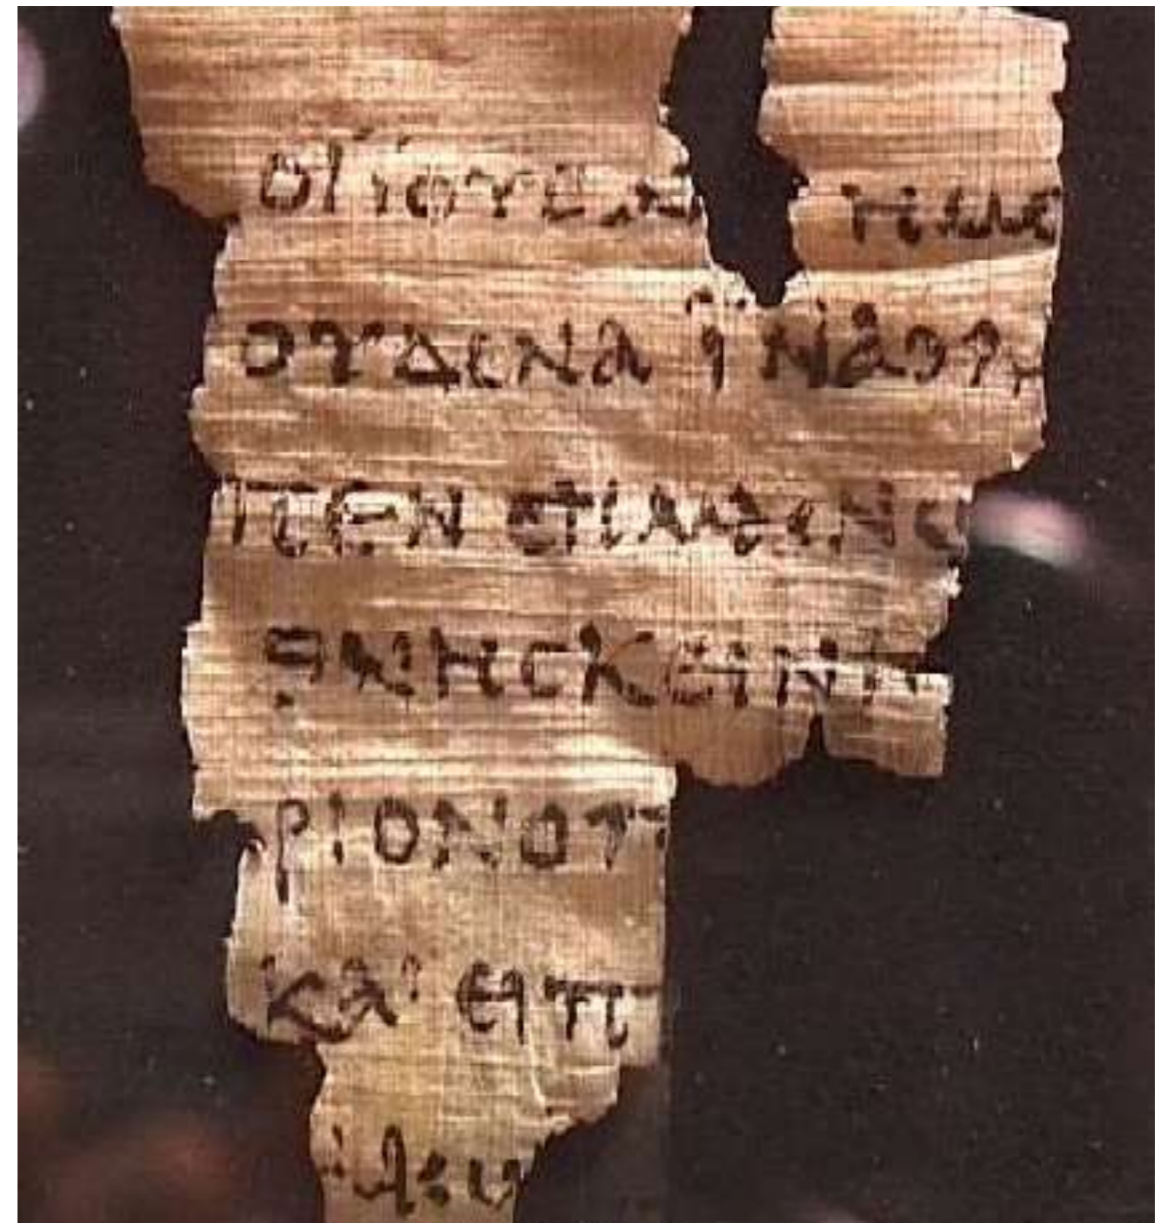 ΟΙΙΟΥΔΑΙ ΗΜΕ
ΟΥΔΕΝΑ ΙΝΑΟΛΟ
ΠΕΝ ΣΗΜΑΙΝΩ
ΘΝΗΣΚΕΙΝ
ΡΙΟΝΟΠ
ΚΑΙ ΕΙΠ
ΑΙΩ